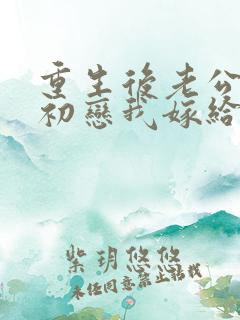 重生後老公
初戀我嫁給
紫玥悠悠
未任同意禁止轉載